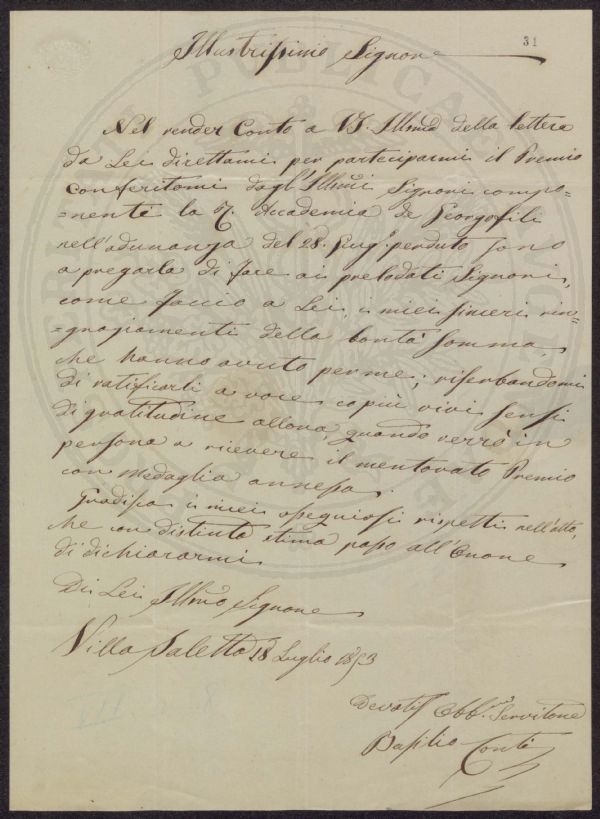 31
Illustrissimo Signore
Nel render Conto a VS. Illma della lettera
da Lei direttami per parteciparmi il Premio
conferitomi dagl'Illmi Signori compo=
=nenti la R. Accademia de Georgofili
nell'adunanza del 28. Giugo. perduto sono
a pregarla di fare ai prelodati Signori,
come faccio a Lei, i miei sinceri rin=
=graziamenti della bontà somma,
che hanno avuto per me; riserbandomi
di ratificarli a voce co più vivi sensi
di gratitudine allora, quando verrò in
persona a ricevere il mentovato Premio
con medaglia annessa.
Gradisca i miei ossequiosi rispetti nell'atto,
che con distinta stima passo all'Onore
di dichiararmi
Di Lei Illmo Signore
Villa Saletta 18 Luglio 1853
Devotiss Obb.mo Servitore
Basilio Conti